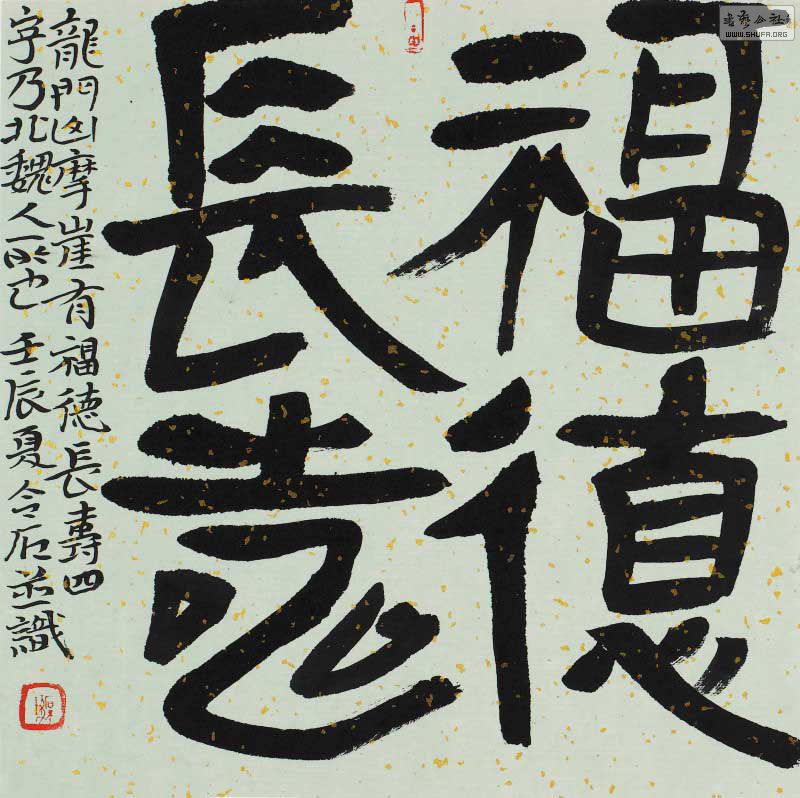 福德
長壽
龍門山摩崖有福德長壽四
字乃北魏人所也壬辰夏令石並識
書藝公社
WWW.SHUFA.ORG